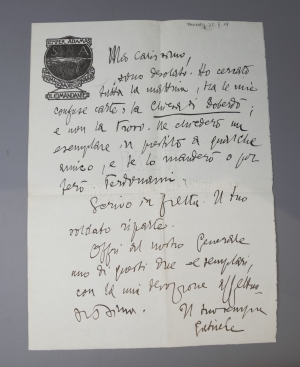 IL COMANDANTE
Mio carissimo,
sono desolato. Ho cercato
tutta la mattina, tra le mie
confuse carte, la Chiesa di Doberdò;
e non la trovo. Ne chiederò un
esemplare in prestito a qualche
amico, e te lo manderò o por
terò. Perdonami.
Scrivo in fretta. Il tuo
soldato riparte.
Offri al nostro Generale
uno di questi due esemplari,
con la mia devozione affettuo
Il tuo sempre
Gabriele